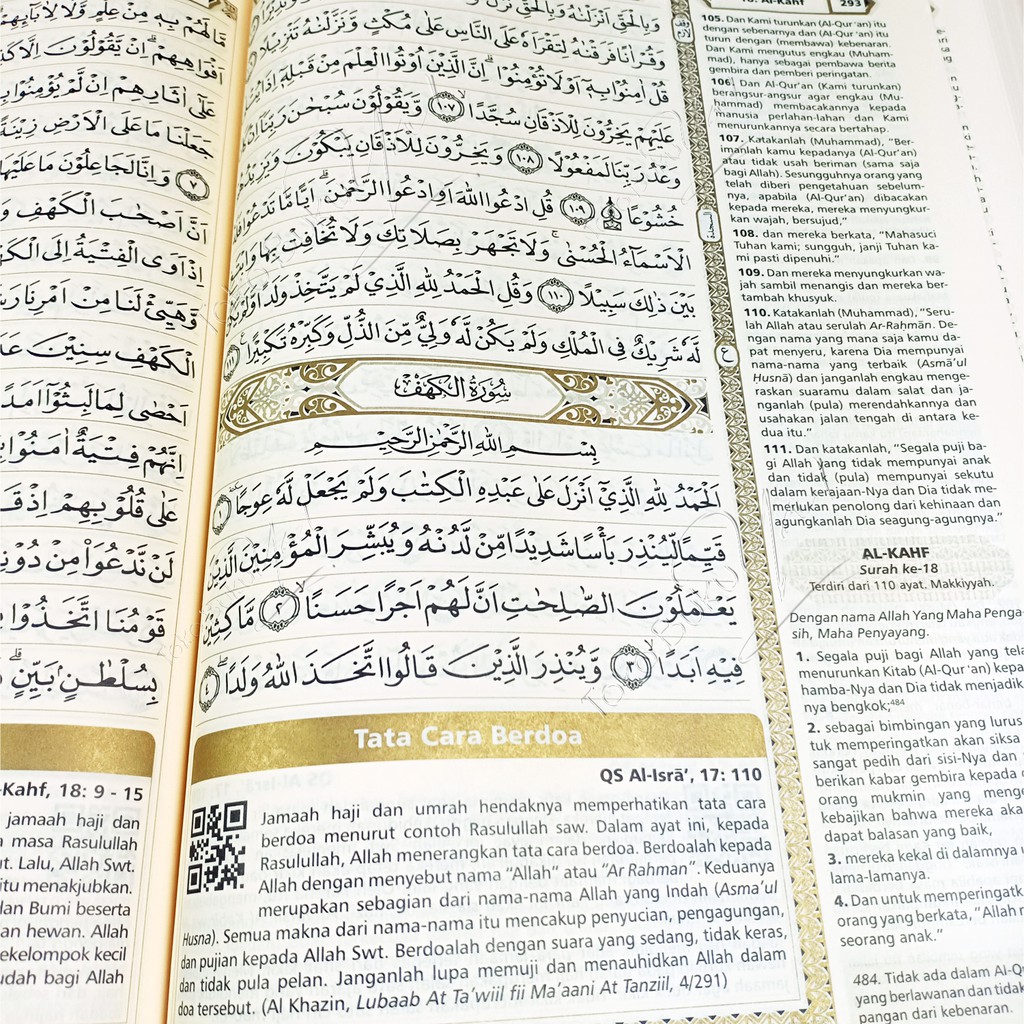 18. Al-Kahf 293
وَبِالْحَقِّ اَنْزَلْنٰهُ وَبِالْحَقِّ
وَقُرْاٰنًا فَرَقْنٰهُ لِتَقْرَاَهٗ عَلَى النَّاسِ عَلٰى مُكْثٍ وَّنَزَّلْنٰهُ تَنْزِيْلًا
قُلْ اٰمِنُوْا بِهٖٓ اَوْ لَا تُؤْمِنُوْاۗ اِنَّ الَّذِيْنَ اُوْتُوا الْعِلْمَ مِنْ قَبْلِهٖٓ اِذَا
عَلَيْهِمْ يَخِرُّوْنَ لِلْاَذْقَانِ سُجَّدًا ١٠٧ وَّيَقُوْلُوْنَ سُبْحٰنَ رَبِّنَآ
وَعْدُ رَبِّنَا لَمَفْعُوْلًا ١٠٨ وَيَخِرُّوْنَ لِلْاَذْقَانِ يَبْكُوْنَ
خُشُوْعًا ۩ ١٠٩ قُلِ ادْعُوا اللّٰهَ اَوِ ادْعُوا الرَّحْمٰنَۗ اَيًّا مَّا تَدْعُوْا
الْاَسْمَاۤءُ الْحُسْنٰىۚ وَلَا تَجْهَرْ بِصَلَاتِكَ وَلَا تُخَافِتْ بِهَا
بَيْنَ ذٰلِكَ سَبِيْلًا ١١٠ وَقُلِ الْحَمْدُ لِلّٰهِ الَّذِيْ لَمْ يَتَّخِذْ وَلَدًا
لَّهٗ شَرِيْكٌ فِى الْمُلْكِ وَلَمْ يَكُنْ لَّهٗ وَلِيٌّ مِّنَ الذُّلِّ وَكَبِّرْهُ تَكْبِيْرًا ١١١
سُوْرَةُ الْكَهْفِ
بِسْمِ اللّٰهِ الرَّحْمٰنِ الرَّحِيْمِ
اَلْحَمْدُ لِلّٰهِ الَّذِيْٓ اَنْزَلَ عَلٰى عَبْدِهِ الْكِتٰبَ وَلَمْ يَجْعَلْ لَّهٗ عِوَجًا ١
قَيِّمًا لِّيُنْذِرَ بَأْسًا شَدِيْدًا مِّنْ لَّدُنْهُ وَيُبَشِّرَ الْمُؤْمِنِيْنَ الَّذِيْنَ
يَعْمَلُوْنَ الصّٰلِحٰتِ اَنَّ لَهُمْ اَجْرًا حَسَنًا ٢ مَّاكِثِيْنَ
فِيْهِ اَبَدًا ٣ وَّيُنْذِرَ الَّذِيْنَ قَالُوا اتَّخَذَ اللّٰهُ وَلَدًا ٤
السجدة
ع
Tata Cara Berdoa
QS Al-Isrā’, 17: 110
Jamaah haji dan umrah hendaknya memperhatikan tata cara
berdoa menurut contoh Rasulullah saw. Dalam ayat ini, kepada
Rasulullah, Allah menerangkan tata cara berdoa. Berdoalah kepada
Allah dengan menyebut nama “Allah” atau “Ar Rahman”. Keduanya
merupakan sebagian dari nama-nama Allah yang Indah (Asma’ul
Husna). Semua makna dari nama-nama itu mencakup penyucian, pengagungan,
dan pujian kepada Allah Swt. Berdoalah dengan suara yang sedang, tidak keras,
dan tidak pula pelan. Janganlah lupa memuji dan menauhidkan Allah dalam
doa tersebut. (Al Khazin, Lubaab At Ta’wiil fii Ma’aani At Tanziil, 4/291)
105. Dan Kami turunkan (Al-Qur’an) itu
dengan sebenarnya dan (Al-Qur’an) itu
turun dengan (membawa) kebenaran.
Dan Kami mengutus engkau (Muham-
mad), hanya sebagai pembawa berita
gembira dan pemberi peringatan.
106. Dan Al-Qur’an (Kami turunkan)
berangsur-angsur agar engkau (Mu-
hammad) membacakannya kepada
manusia perlahan-lahan dan Kami
menurunkannya secara bertahap.
107. Katakanlah (Muhammad), “Ber-
imanlah kamu kepadanya (Al-Qur’an)
atau tidak usah beriman (sama saja
bagi Allah). Sesungguhnya orang yang
telah diberi pengetahuan sebelum-
nya, apabila (Al-Qur’an) dibacakan
kepada mereka, mereka menyungkur-
kan wajah, bersujud,”
108. dan mereka berkata, “Mahasuci
Tuhan kami; sungguh, janji Tuhan ka-
mi pasti dipenuhi.”
109. Dan mereka menyungkurkan wa-
jah sambil menangis dan mereka ber-
tambah khusyuk.
110. Katakanlah (Muhammad), “Seru-
lah Allah atau serulah Ar-Raḥmān. De-
ngan nama yang mana saja kamu da-
pat menyeru, karena Dia mempunyai
nama-nama yang terbaik (Asmā’ul
Ḥusnā) dan janganlah engkau menge-
raskan suaramu dalam salat dan ja-
nganlah (pula) merendahkannya dan
usahakan jalan tengah di antara ke-
dua itu.”
111. Dan katakanlah, “Segala puji ba-
gi Allah yang tidak mempunyai anak
dan tidak (pula) mempunyai sekutu
dalam kerajaan-Nya dan Dia tidak me-
merlukan penolong dari kehinaan dan
agungkanlah Dia seagung-agungnya.”
AL-KAHF
Surah ke-18
Terdiri dari 110 ayat. Makkiyyah.
Dengan nama Allah Yang Maha Penga-
sih, Maha Penyayang.
1. Segala puji bagi Allah yang
menurunkan Kitab (Al-Qur’an)
hamba-Nya dan Dia tidak
nya bengkok;484
2. sebagai bimbingan yang lurus
tuk memperingatkan akan siksa
sangat pedih dari sisi-Nya dan
berikan kabar gembira kepada
orang mukmin yang
kebajikan bahwa mereka
dapat balasan yang baik,
3. mereka kekal di dalamnya
lama-lamanya.
4. Dan untuk
orang yang berkata, “Allah
seorang anak.”
484. Tidak ada dalam
yang berlawanan dan
pangan dari kebenaran.
مَا لَهُمْ بِهٖ مِنْ عِلْمٍ وَّلَا لِاٰبَاۤىِٕهِمْ
اَفْوَاهِهِمْۗ اِنْ يَّقُوْلُوْنَ اِلَّا
عَلٰٓى اٰثَارِهِمْ اِنْ لَّمْ يُؤْمِنُوْا
جَعَلْنَا مَا عَلَى الْاَرْضِ زِيْنَةً
٧ وَاِنَّا لَجَاعِلُوْنَ مَا عَلَيْهَا
اَنَّ اَصْحٰبَ الْكَهْفِ
اِذْ اَوَى الْفِتْيَةُ اِلَى
وَّهَيِّئْ لَنَا مِنْ اَمْرِنَا
الْكَهْفِ سِنِيْنَ
اَحْصٰى لِمَا لَبِثُوْٓا اَمَدًا
اِنَّهُمْ فِتْيَةٌ اٰمَنُوْا
عَلٰى قُلُوْبِهِمْ اِذْ
لَنْ نَّدْعُوَا۟ مِنْ
قَوْمُنَا اتَّخَذُوْا
بِسُلْطٰنٍۢ بَيِّنٍۗ
-Kahf, 18: 9 - 15
jamaah haji dan
masa Rasulullah
Lalu, Allah Swt.
itu menakjubkan.
Bumi beserta
hewan. Allah
sekelompok kecil
bagi Allah